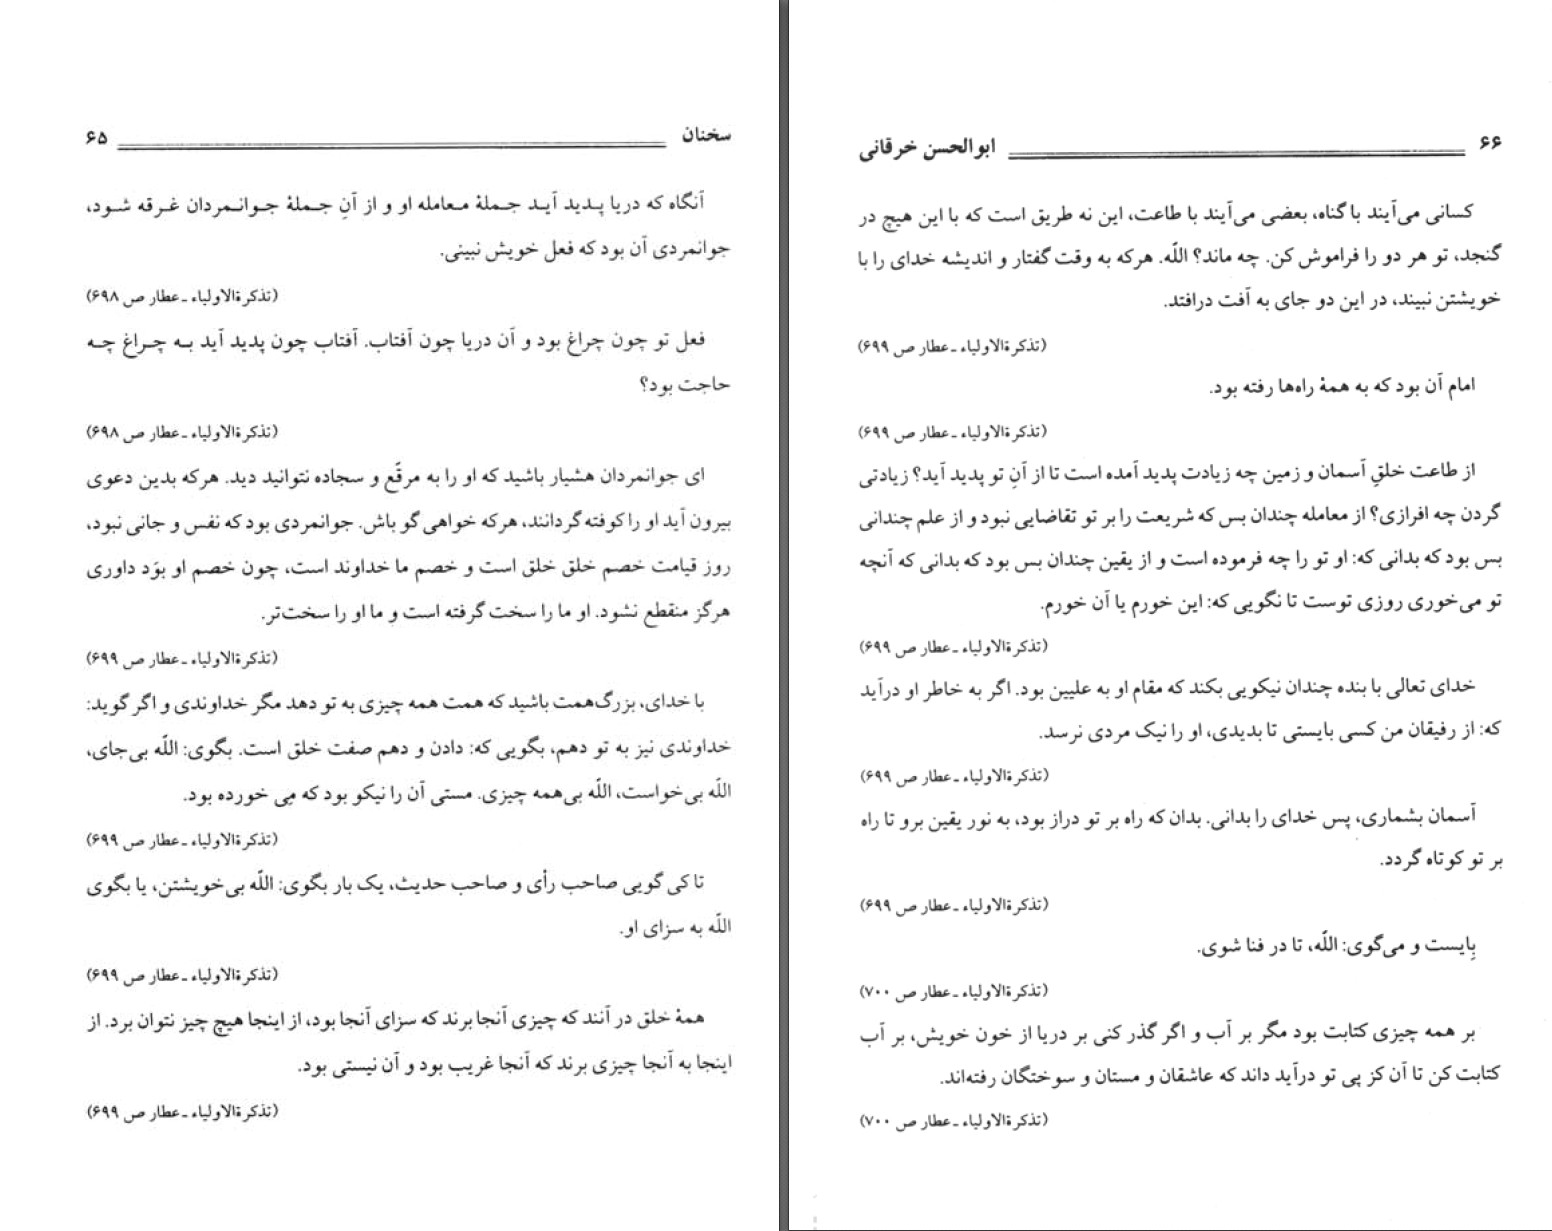 سخنان ۶۵
آنگاه که دریا پدید آید جملهٔ معامله او و از آنِ جملهٔ جوانمردان غرقه شود،
جوانمردی آن بود که فعل خویش نبینی.
(تذکرةالاولیاء ـ عطار ص ۶۹۸)
فعل تو چون چراغ بود و آن دریا چون آفتاب. آفتاب چون پدید آید به چراغ چه
حاجت بود؟
(تذکرةالاولیاء ـ عطار ص ۶۹۸)
ای جوانمردان هشیار باشید که او را به مرقّع و سجاده نتوانید دید. هرکه بدین دعوی
بیرون آید او را کوفته گردانند، هرکه خواهی گو باش. جوانمردی بود که نفس و جانی نبود،
روز قیامت خصم خلق خلق است و خصم ما خداوند است، چون خصم او بوَد داوری
هرگز منقطع نشود. او ما را سخت گرفته است و ما او را سخت‌تر.
(تذکرةالاولیاء ـ عطار ص ۶۹۹)
با خدای، بزرگ‌همت باشید که همت همه چیزی به تو دهد مگر خداوندی و اگر گوید:
خداوندی نیز به تو دهم، بگویی که: دادن و دهم صفت خلق است. بگوی: اللّه بی‌جای،
اللّه بی‌خواست، اللّه بی‌همه چیزی. مستی آن را نیکو بود که مِی خورده بود.
(تذکرةالاولیاء ـ عطار ص ۶۹۹)
تا کی گویی صاحب رأی و صاحب حدیث، یک بار بگوی: اللّه بی‌خویشتن، یا بگوی
اللّه به سزای او.
(تذکرةالاولیاء ـ عطار ص ۶۹۹)
همهٔ خلق در آنند که چیزی آنجا برند که سزای آنجا بود، از اینجا هیچ چیز نتوان برد. از
اینجا به آنجا چیزی برند که آنجا غریب بود و آن نیستی بود.
(تذکرةالاولیاء ـ عطار ص ۶۹۹)
۶۶ ابوالحسن خرقانی
کسانی می‌آیند با گناه، بعضی می‌آیند با طاعت، این نه طریق است که با این هیچ در
گنجد، تو هر دو را فراموش کن. چه ماند؟ اللّه. هرکه به وقت گفتار و اندیشه خدای را با
خویشتن نبیند، در این دو جای به آفت درافتد.
(تذکرةالاولیاء ـ عطار ص ۶۹۹)
امام آن بود که به همهٔ راه‌ها رفته بود.
(تذکرةالاولیاء ـ عطار ص ۶۹۹)
از طاعت خلقِ آسمان و زمین چه زیادت پدید آمده است تا از آنِ تو پدید آید؟ زیادتی
گردن چه افرازی؟ از معامله چندان بس که شریعت را بر تو تقاضایی نبود و از علم چندانی
بس بود که بدانی که: او تو را چه فرموده است و از یقین چندان بس بود که بدانی که آنچه
تو می‌خوری روزی توست تا نگویی که: این خورم یا آن خورم.
(تذکرةالاولیاء ـ عطار ص ۶۹۹)
خدای تعالی با بنده چندان نیکویی بکند که مقام او به علیین بود. اگر به خاطر او درآید
که: از رفیقان من کسی بایستی تا بدیدی، او را نیک مردی نرسد.
(تذکرةالاولیاء ـ عطار ص ۶۹۹)
آسمان بشماری، پس خدای را بدانی. بدان که راه بر تو دراز بود، به نور یقین برو تا راه
بر تو کوتاه گردد.
(تذکرةالاولیاء ـ عطار ص ۶۹۹)
بِایست و می‌گوی: اللّه، تا در فنا شوی.
(تذکرةالاولیاء ـ عطار ص ۷۰۰)
بر همه چیزی کتابت بود مگر بر آب و اگر گذر کنی بر دریا از خون خویش، بر آب
کتابت کن تا آن کز پی تو درآید داند که عاشقان و مستان و سوختگان رفته‌اند.
(تذکرةالاولیاء ـ عطار ص ۷۰۰)